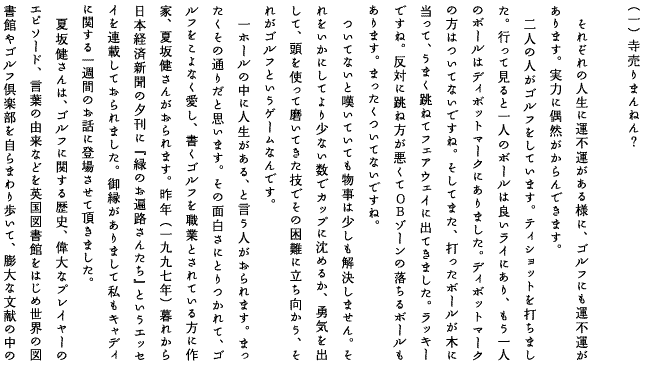 （一）寺売りまんねん？
それぞれの人生に運不運がある様に、ゴルフにも運不運が
あります。実力に偶然がからんできます。
二人の人がゴルフをしています。ティショットを打ちまし
た。行って見ると一人のボールは良いライにあり、もう一人
のボールはディボットマークにありました。ディボットマーク
の方はついてないですね。そしてまた、打ったボールが木に
当って、うまく跳ねてフェアウェイに出てきました。ラッキー
ですね。反対に跳ね方が悪くてOBゾーンの落ちるボールも
あります。まったくついてないですね。
ついてないと嘆いていても物事は少しも解決しません。そ
れをいかにしてより少ない数でカップに沈めるか、勇気を出
して、頭を使って磨いてきた技でその困難に立ち向かう、そ
れがゴルフというゲームなんです。
一ホールの中に人生がある、と言う人がおられます。まっ
たくその通りだと思います。その面白さにとりつかれて、ゴ
ルフをこよなく愛し、書くゴルフを職業とされている方に作
家、夏坂健さんがおられます。昨年（一九九七年）暮れから
日本経済新聞の夕刊に『縁のお遍路さんたち』というエッセ
イを連載しておられました。御縁がありまして私もキャディ
に関する一週間のお話に登場させて頂きました。
夏坂健さんは、ゴルフに関する歴史、偉大なプレイヤーの
エピソード、言葉の由来などを英国図書館をはじめ世界の図
書館やゴルフ倶楽部を自らまわり歩いて、膨大な文献の中の